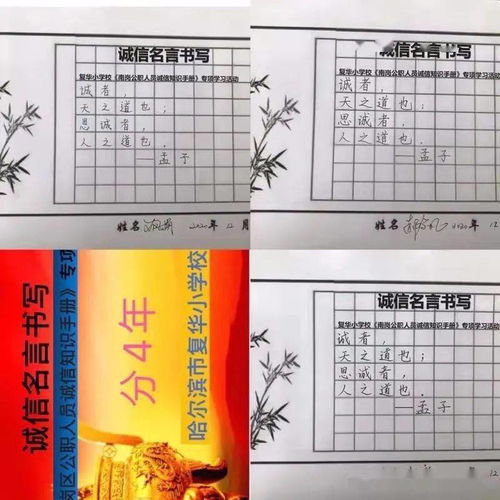 诚信名言书写
复华小学校《南岗公职人员诚信知识手册》专项学习活动
诚者，
天之道也；
思诚者，
人之道也．
——孟子
姓名 2020年12月
诚信名言书写
复华小学校《南岗公职人员诚信知识手册》专项学习活动
诚者，
天之道也；
思诚者，
人之道也．
——孟子
姓名 2020年12
诚信名言书写
岗区公职人员诚信知识手册》专项
分4年
哈尔滨市复华小学校
诚信名言书写
复华小学校《南岗公职人员诚信知识手册》专项学习活动
诚者，
天之道也；
思诚者，
人之道也．
——孟子
12